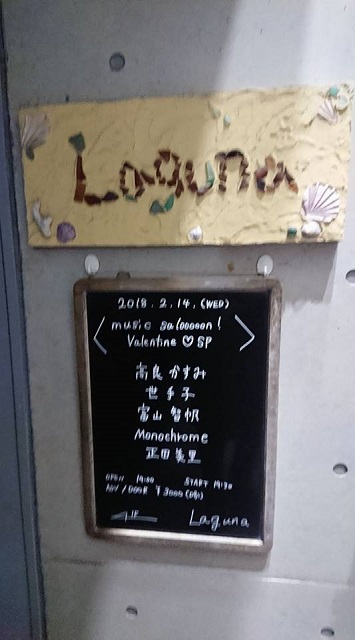 Laguna
2018. 2. 14. (WED)
music salooooon!
Valentine ♡ SP
高良 かすみ
世手子
富山 智帆
Monochrome
正田 美里
OPEN 19:00 START 19:30
ADV / DOOR ¥3000
Laguna